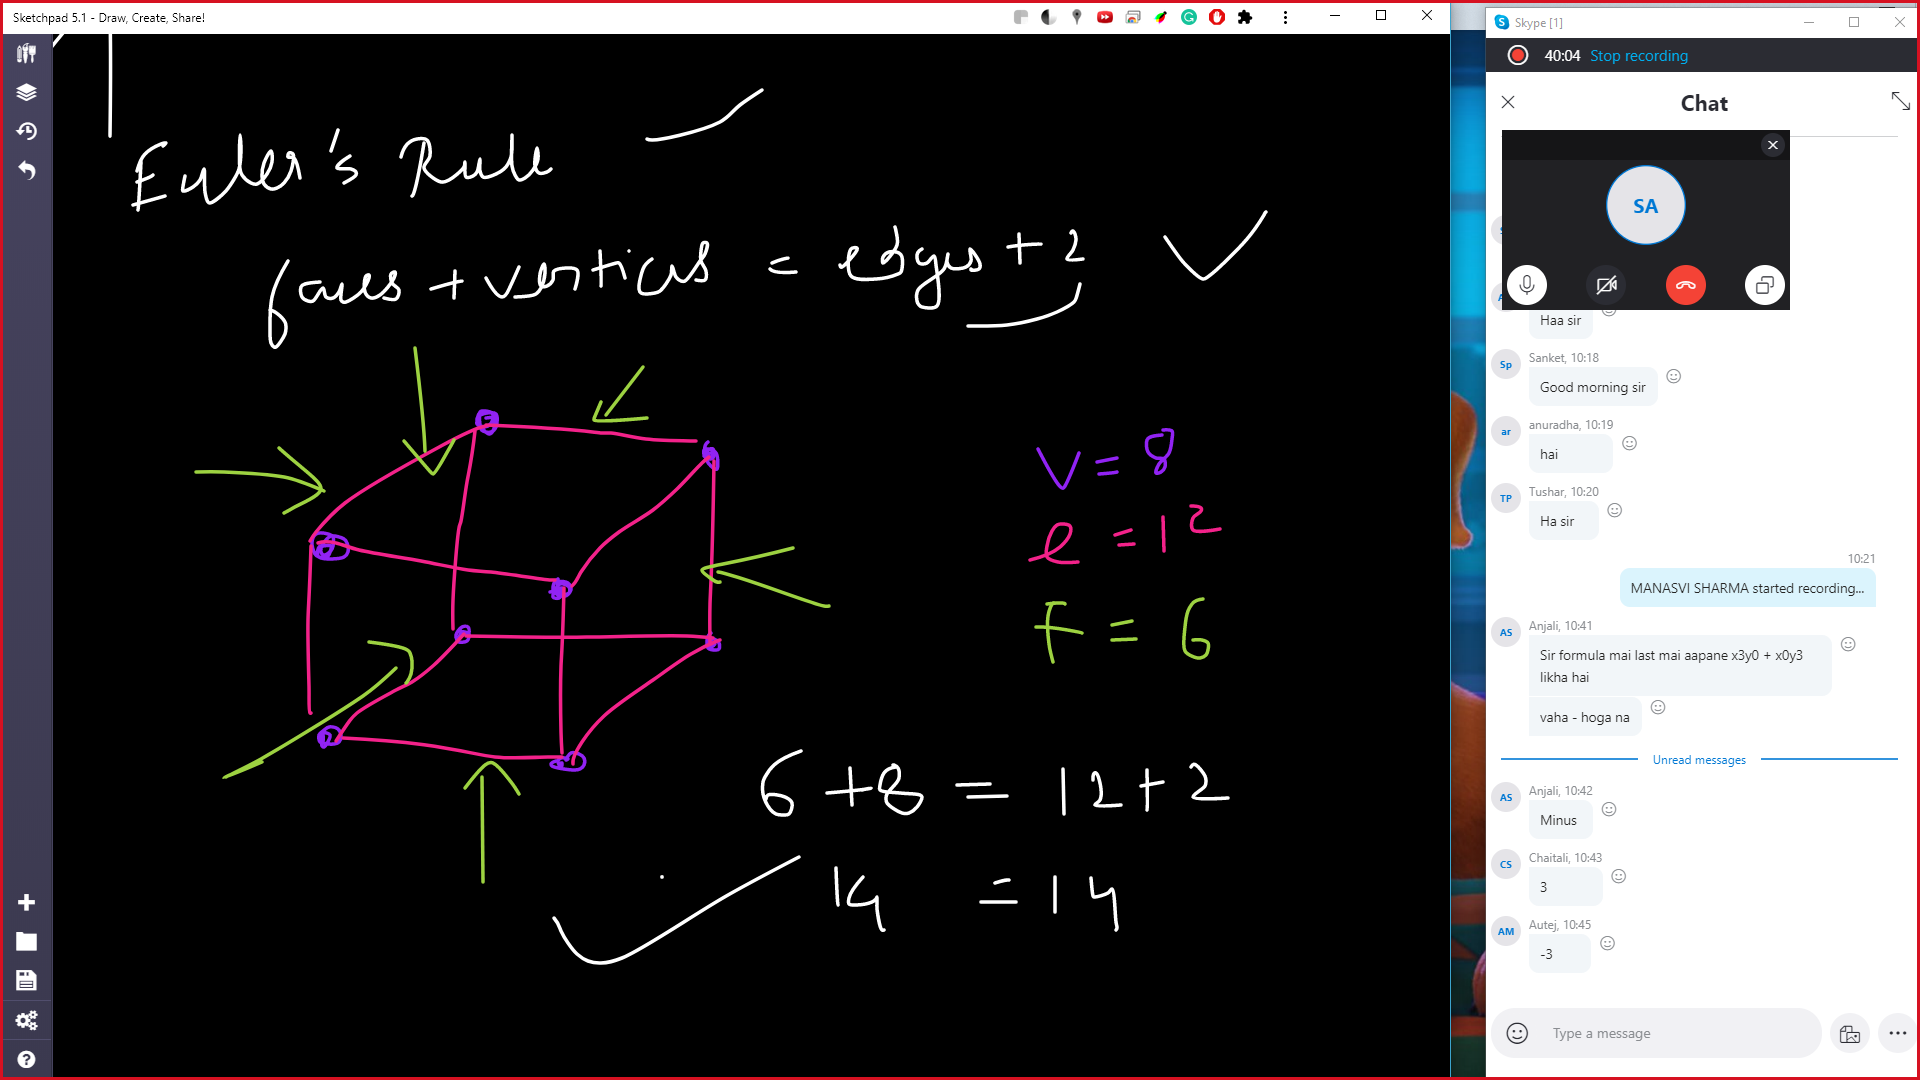 Sketchpad 5.1 - Draw, Create, Share!
Euler's Rule
faces + vertices = edges + 2
V = 8
e = 12
F = 6
6 + 8 = 12 + 2
14 = 14
Skype [1]
40:04 Stop recording
Chat
SA
Haa sir
Sp
Sanket, 10:18
Good morning sir
ar
anuradha, 10:19
hai
TP
Tushar, 10:20
Ha sir
10:21
MANASVI SHARMA started recording...
AS
Anjali, 10:41
Sir formula mai last mai aapane x3y0 + x0y3
likha hai
vaha - hoga na
Unread messages
AS
Anjali, 10:42
Minus
CS
Chaitali, 10:43
3
AM
Autej, 10:45
-3
Type a message